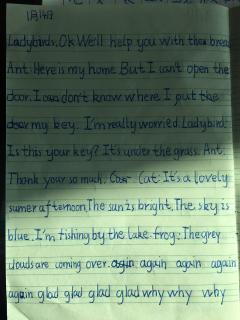 1月14日
Ladybirds. Ok We'll help you with the bread
Ant. Here is my home But I can't open the
door. I can don't know where I put the
door my key. I'm really worried. Ladybird.
Is this your key? It's under the grass. Ant.
Thank your so much. Can Cat. It's a lovely
sumer afternoon. The sun is bright. The sky is
blue. I'm fishing by the lake. frog. The grey
clouds are coming over. again again again again
again glad glad glad glad why why why